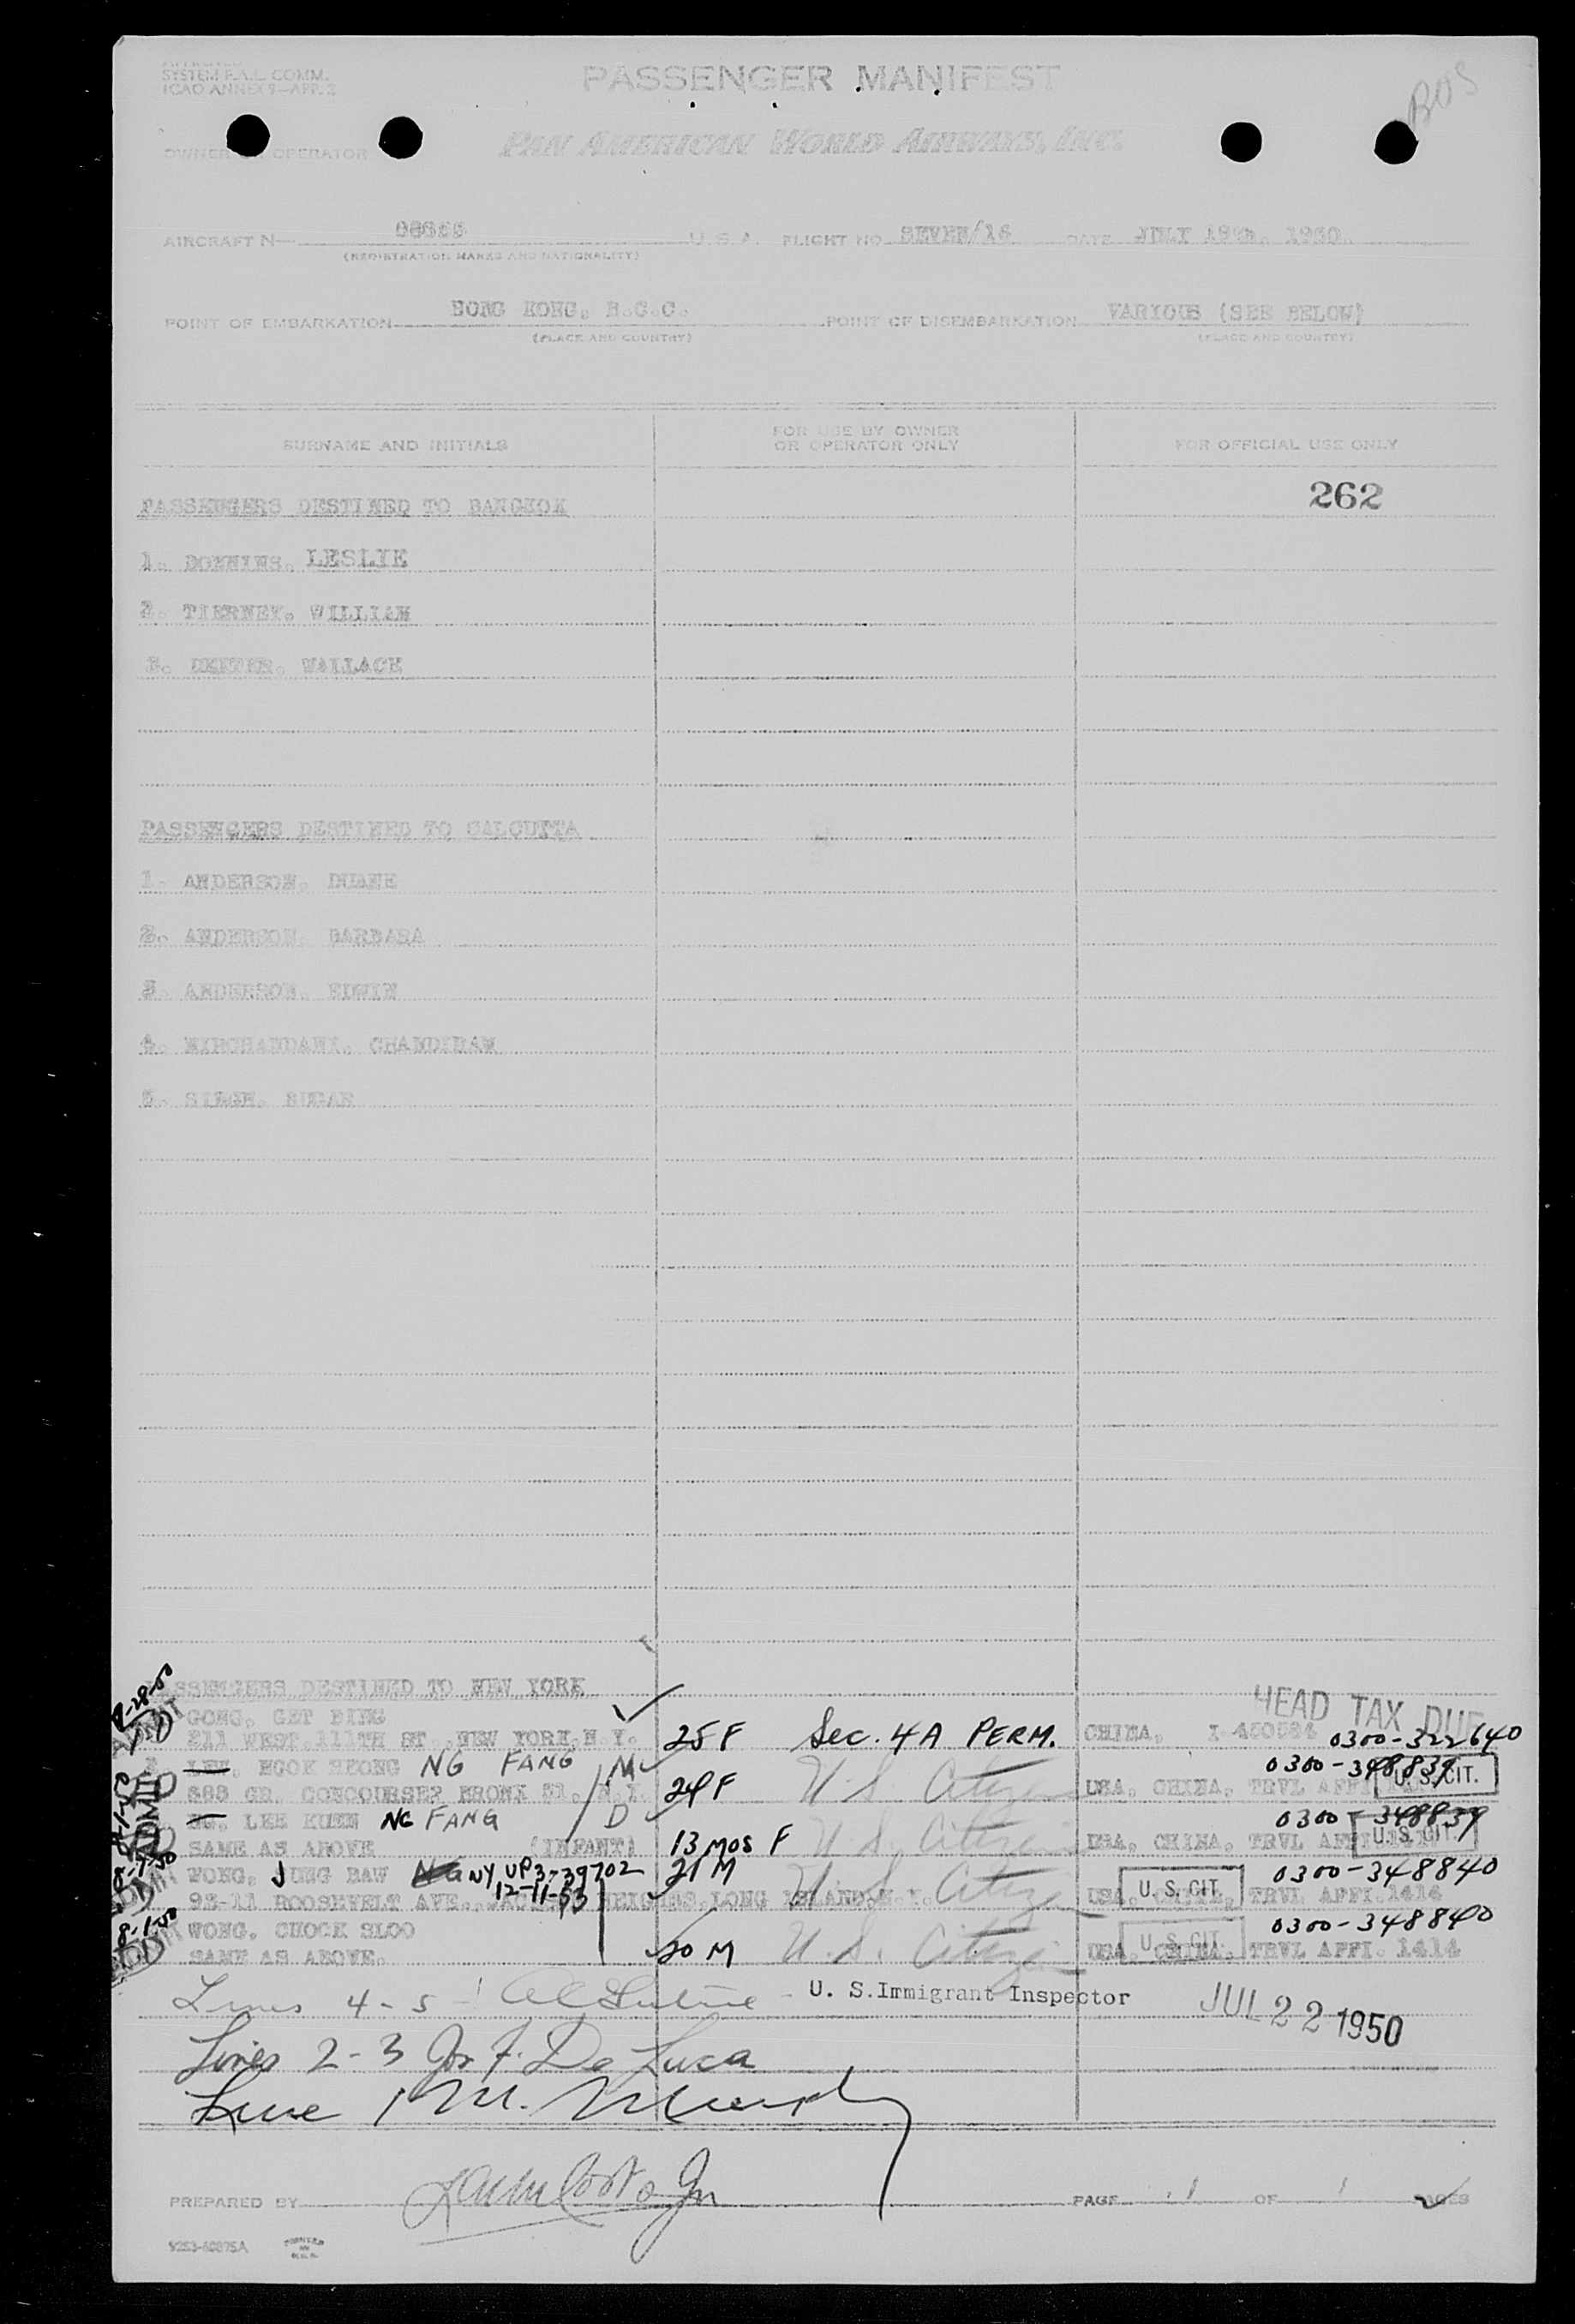 SYSTEM F.A.L. COMM.
ICAO ANNEX 9—APP. 2
PASSENGER MANIFEST
BOS
OWNER OR OPERATOR
PAN AMERICAN WORLD AIRWAYS, INC.
AIRCRAFT N— U. S. A. FLIGHT NO. SEVEN/16 DATE JULY 19th. 1950.
(REGISTRATION MARKS AND NATIONALITY)
POINT OF EMBARKATION HONG KONG, B.C.C. POINT OF DISEMBARKATION VARIOUS (SEE BELOW)
(PLACE AND COUNTRY) (PLACE AND COUNTRY)
SURNAME AND INITIALS FOR USE BY OWNER OR OPERATOR ONLY FOR OFFICIAL USE ONLY
PASSENGERS DESTINED TO BANGKOK 262
1. LESLIE
2. TIERNEY, WILLIAM
3. DEXTER, WALLACE
PASSENGERS DESTINED TO CALCUTTA
1. ANDERSON, DUANE
2. ANDERSON, BARBARA
3. ANDERSON, EDWIN
4. MIRCHANDANI, CHANDIRAM
5. SINGH,
PASSENGERS DESTINED TO NEW YORK
HEAD TAX DUE
GONG, GET BING
211 WEST 111TH ST., NEW YORK, N.Y. 25 F Sec. 4A PERM. CHINA, 0300-322640
LEE, NGOK NG FANG M 0300-348839
GR. CONCOURSE, BRONX N.Y. 29 F U.S. Citizen USA, CHINA, TRVL AFFI U.S. CIT.
3. NG, LEE KUEN NG FANG D 0300-348839
SAME AS ABOVE (INFANT) 13 MOS F U.S. Citizen USA, CHINA, TRVL AFFI U.S. CIT.
WONG, JUNG BAW NG NY UP3-39702 21 M 0300-348840
12-11-53
93-11 ROOSEVELT AVE., JACKSON HEIGHTS, LONG ISLAND, N.Y. U.S. Citizen USA, CHINA, U.S. CIT. TRVL AFFI. 1414
8-1-50 WONG, CHOCK SLOO 0300-348840
SAME AS ABOVE. 20 M U.S. Citizen USA, CHINA, U.S. CIT. TRVL AFFI. 1414
Lines 4-5 U. S. Immigrant Inspector JUL 22 1950
Lines 2-3 Jos F. De Luca
Line 1 M. Murphy
PREPARED BY PAGE 1 OF 1 PAGES